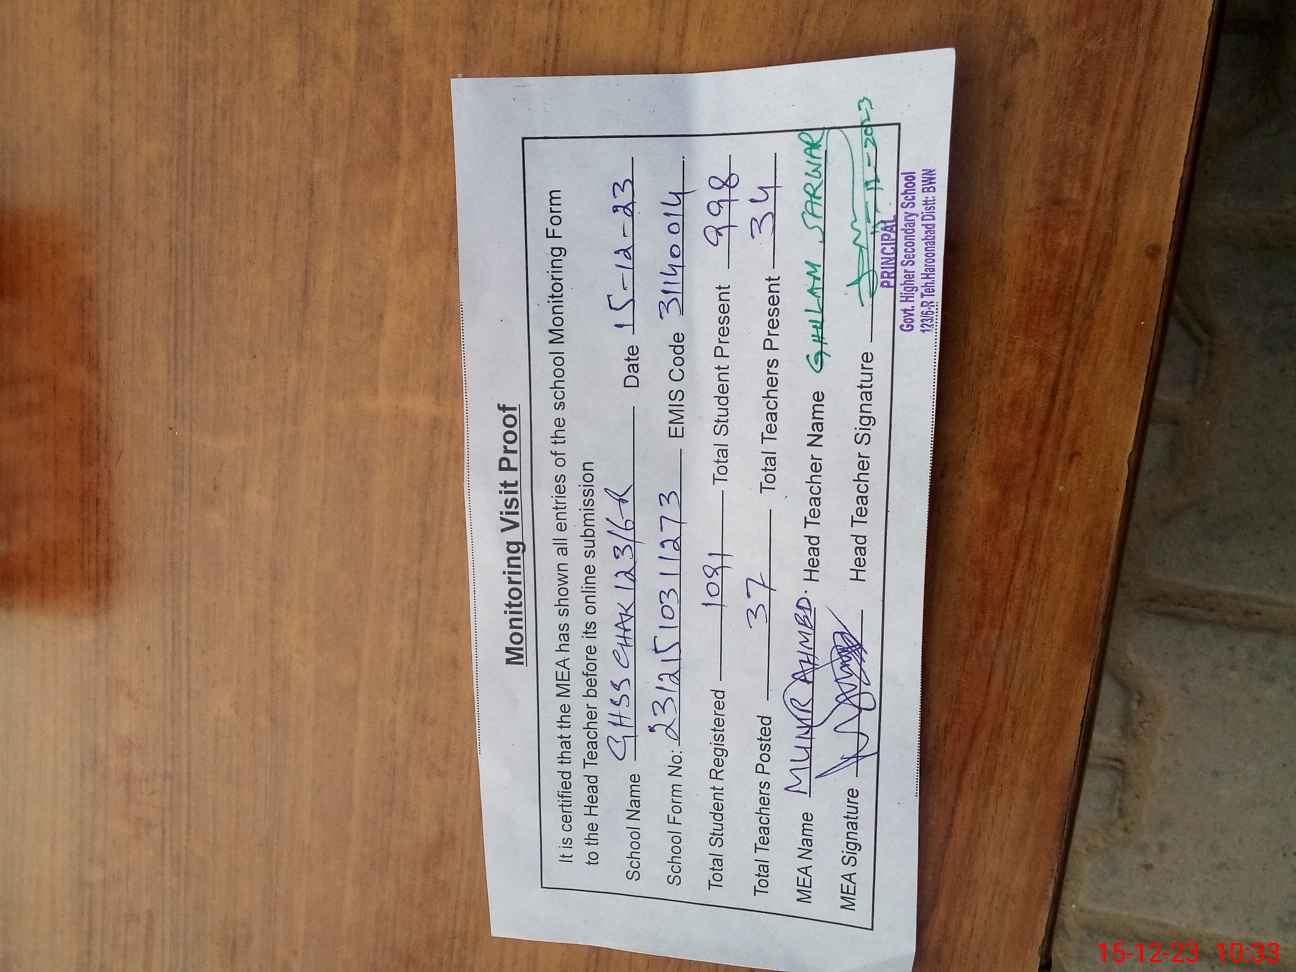 Monitoring Visit Proof
It is certified that the MEA has shown all entries of the school Monitoring Form
to the Head Teacher before its online submission
School Name GHSS CHAK 123/6-R Date 15-12-23
School Form No: 23121510311273 EMIS Code 31140014
Total Student Registered 1091 Total Student Present 998
Total Teachers Posted 37 Total Teachers Present 34
MEA Name MUNIR AHMED. Head Teacher Name GHULAM SARWAR
MEA Signature Head Teacher Signature
-12-2023
PRINCIPAL
Govt. Higher Secondary School
123/6-R Teh.Haroonabad Distt: BWN
15-12-23 10:33